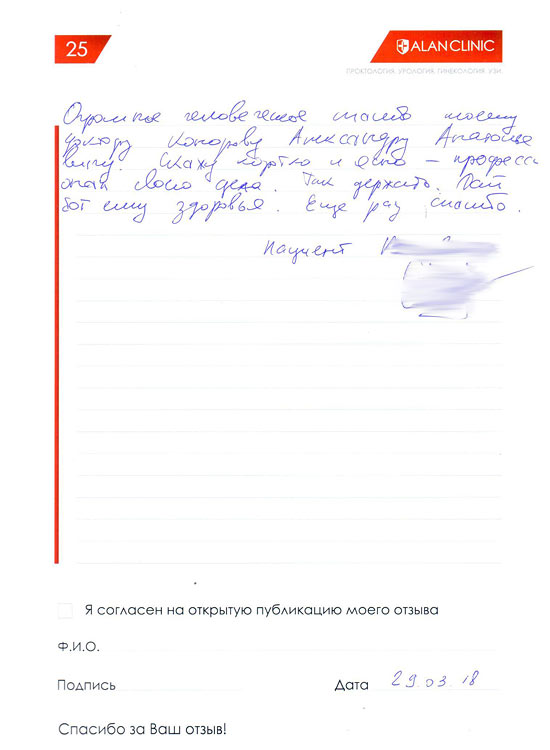 25
ALANCLINIC
ПРОКТОЛОГИЯ. УРОЛОГИЯ. ГИНЕКОЛОГИЯ. УЗИ.
Огромное человеческое спасибо моему
доктору Александру Анатолье
вичу. Скажу коротко и ясно – професси
онал своего дела. Так держать. Дай
бог ему здоровья. Еще раз спасибо.
Пациент
Я согласен на открытую публикацию моего отзыва
Ф.И.О.
Подпись Дата 29.03.18
Спасибо за Ваш отзыв!